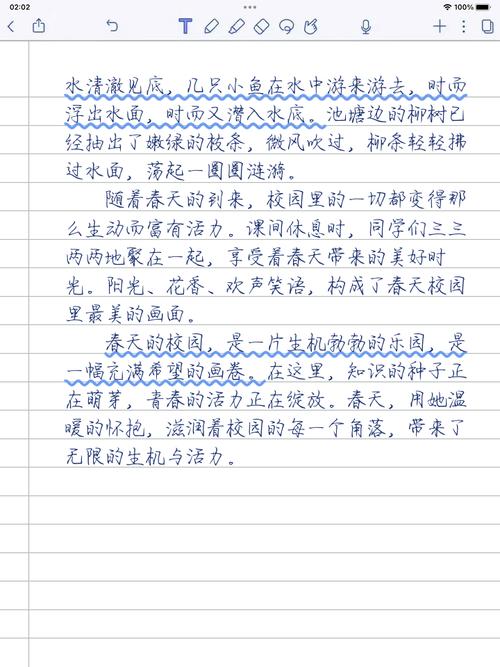 02:02
100%
T
水清澈见底，几只小鱼在水中游来游去，时而
浮出水面，时而又潜入水底。池塘边的柳树已
经抽出了嫩绿的枝条，微风吹过，柳条轻轻拂
过水面，荡起一圈圈涟漪。
随着春天的到来，校园里的一切都变得那
么生动而富有活力。课间休息时，同学们三三
两两地聚在一起，享受着春天带来的美好时
光。阳光、花香、欢声笑语，构成了春天校园
里最美的画面。
春天的校园，是一片生机勃勃的乐园，是
一幅充满希望的画卷。在这里，知识的种子正
在萌芽，青春的活力正在绽放。春天，用她温
暖的怀抱，滋润着校园的每一个角落，带来了
无限的生机与活力。